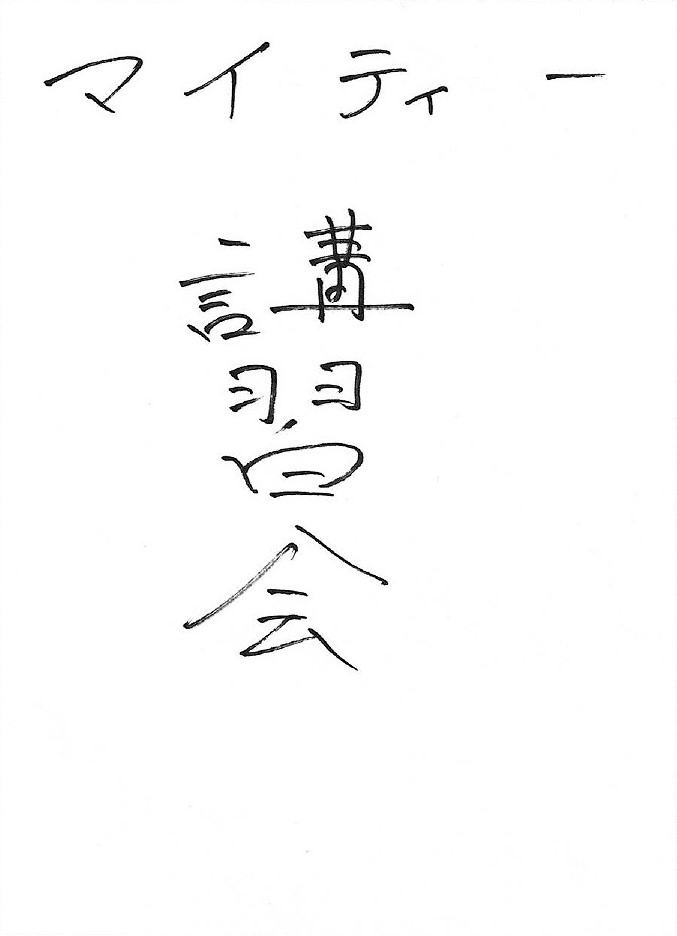 マイティー
講習会